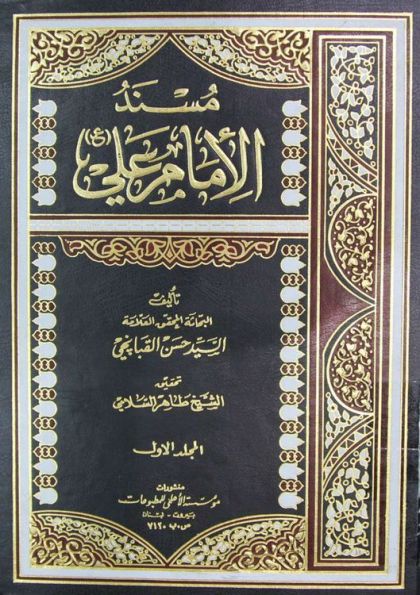 مسند
الإمام علي (ع)
تأليف
البحاثة المحقق العلامة
السيد حسن القبانجي
تحقيق
الشيخ طاهر السلامي
المجلد الاول
منشورات
مؤسسة الأعلمي للمطبوعات
بيروت - لبنان
ص.ب ٧١٢٠